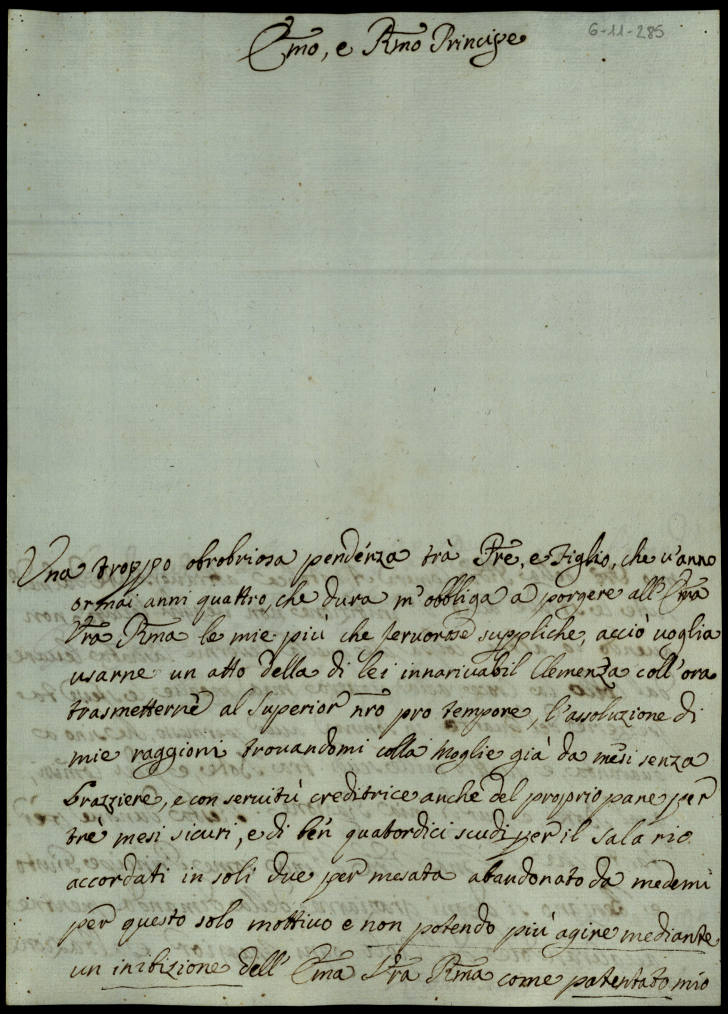 6-11-285
Emo, e Rmo Principe
Una troppo obrobriosa pendenza trà Pre, e Figlio, che v'anno
ormai anni quattro, che dura m'obbliga a porgere all'Emza
Vra Rma le mie più che fervorose suppliche, acciò voglia
usarne un atto della di lei innarivabil Clemenza coll'ora
trasmetterne al Superior nro pro tempore, l'assoluzione di
mie raggioni trovandomi colla Moglie già da mesi senza
, e con servitù creditrice anche del proprio pane per
trè mesi sicuri, e di ben quatordici scudi per il salario
accordati in soli due per mesata abandonato da medemi
per questo solo mottivo e non potendo più agire mediante
un inibizione dell' Ema Vra Rma come patentato mio